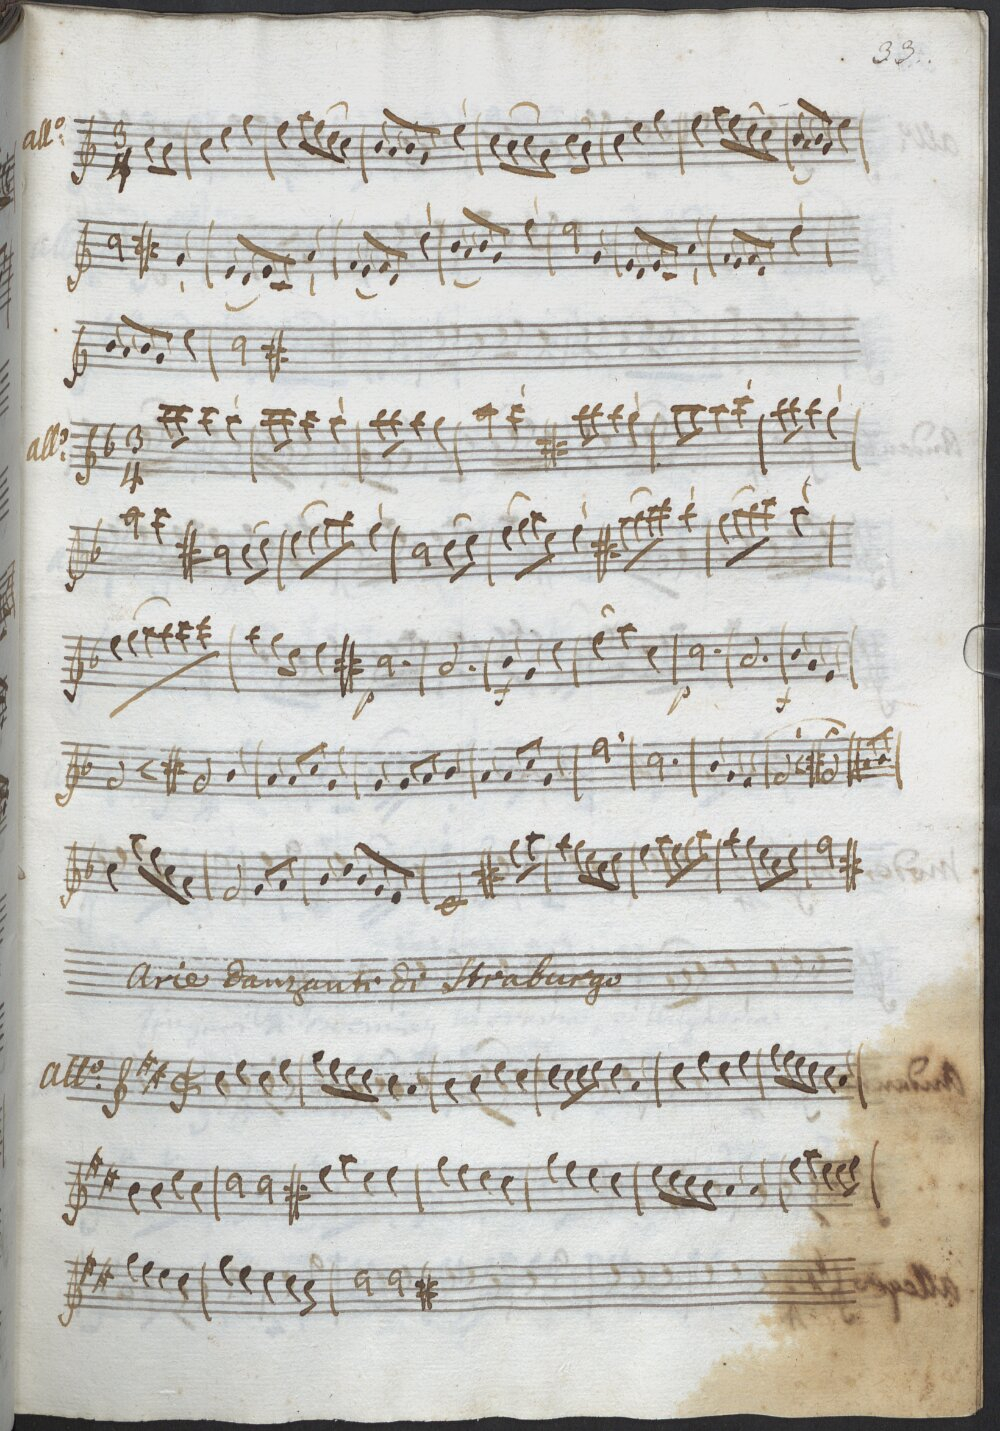 33.
all°:
3
4
all°:
3
4
p
f
p
f
Arie danzanti di Straburgo
all°: